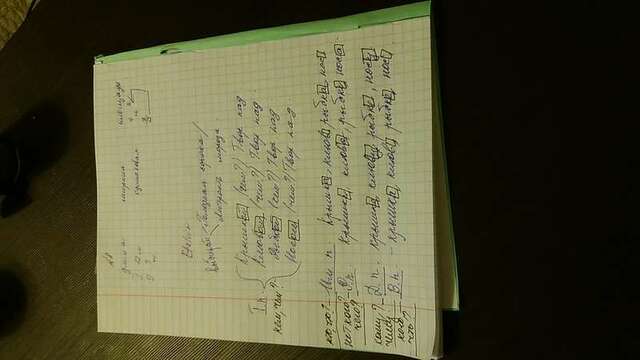 длина ширина площадь
одинаковая
Выборный Голодная сорока /
Хитрость мороза
Крышкой (чем?) Твор пад
Т.п. Клювом (чем?) Твор пад
кем, чем? Рыбкой (чем?) Твор пад
Носом (чем?) Твор пад
кто что? Им п Крышка, клюв, рыбка, нос
нет кого? чего? Р.п Крышки клюва, рыбки, носа
кому? чему Д.п. Крышке клюву рыбке, носу
кого? что? В.п Крышку, клюв рыбку нос